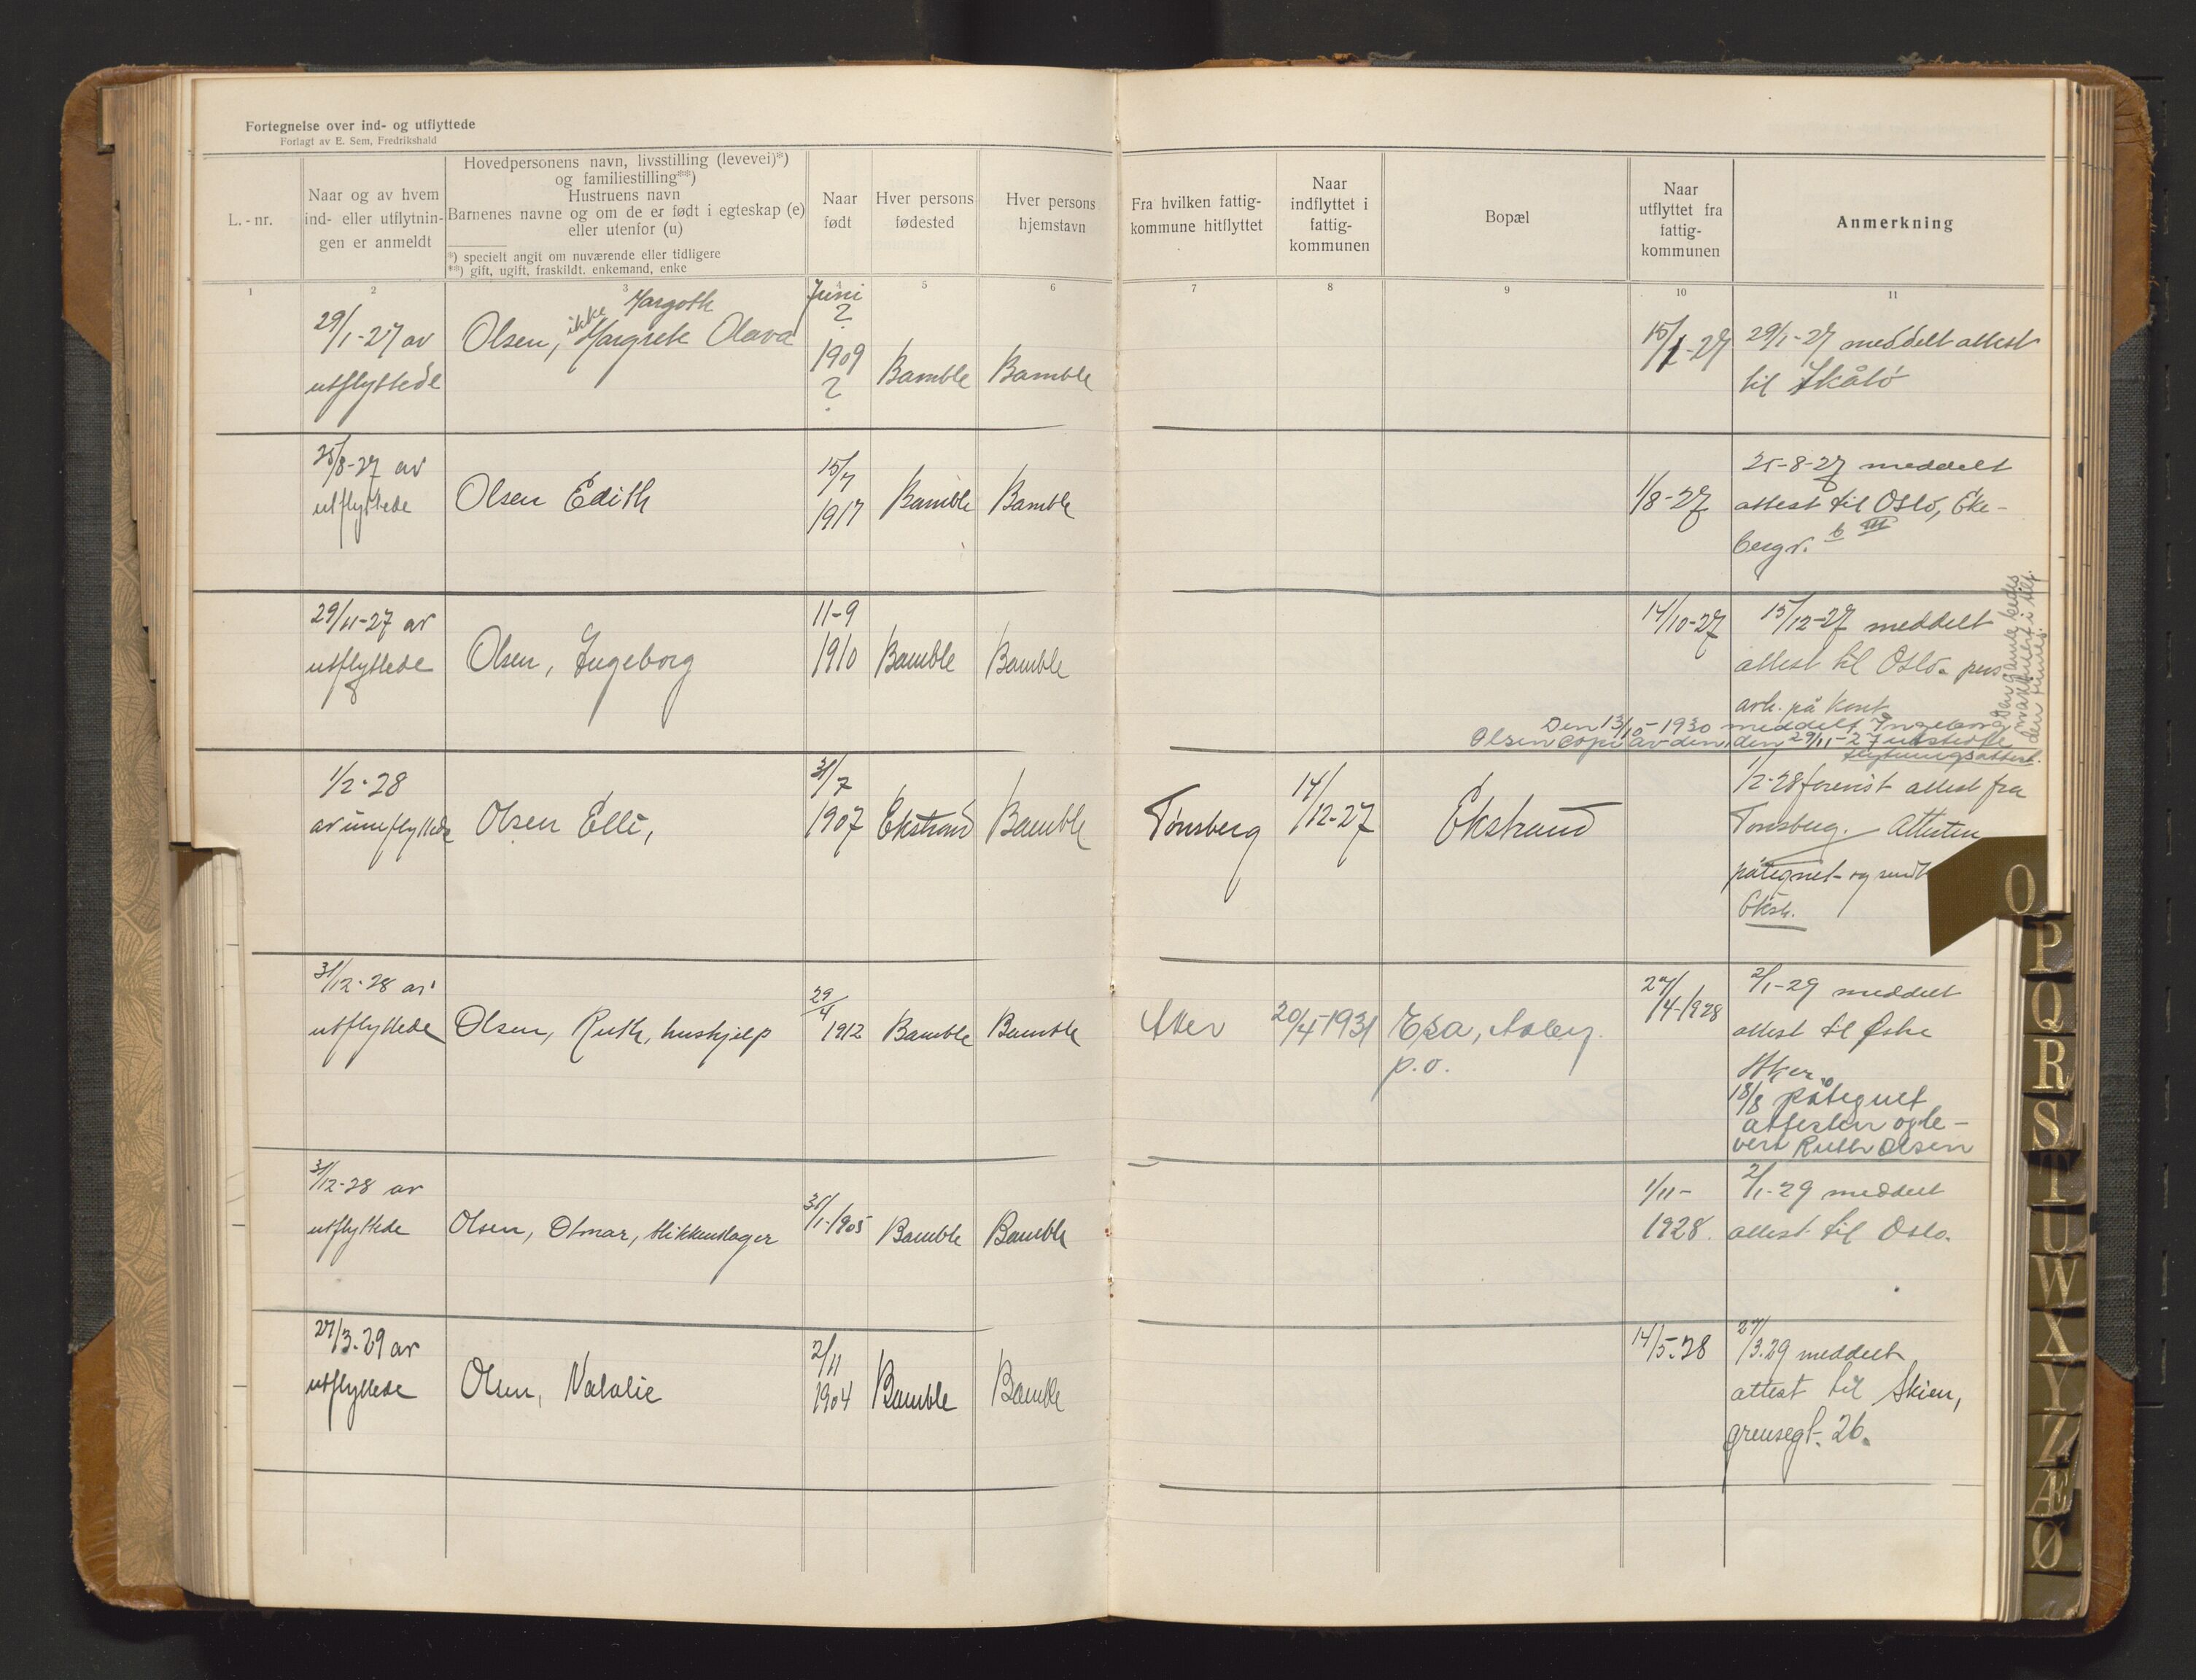 Fortegnelse over ind- og utflyttede
Forlagt av E. Sem, Fredrikshald
L. - nr.
Naar og av hvem
ind- eller utflytnin-
gen er anmeldt
Hovedpersonens navn, livsstilling (levevei)*)
og familiestilling**)
Hustruens navn
Barnenes navne og om de er født i egteskap (e)
eller utenfor (u)
*) specielt angit om nuværende eller tidligere
**) gift, ugift, fraskildt, enkemand, enke
Naar
født
Hver persons
fødested
Hver persons
hjemstavn
Fra hvilken fattig-
kommune hitflyttet
Naar
indflyttet i
fattig-
kommunen
Bopæl
Naar
utflyttet fra
fattig-
kommunen
Anmerkning
1 2 3 4 5 6 7 8 9 10 11
29/1-27 av
utflyttede
Margoth
Olsen, ikke Margrete Olava
Juni
?
1909
?
Bamble
Bamble
15/1-27
29/1-27 meddelt attest
til Skåtö
25/8-27 av
utflyttede
Olsen Edith
15/7
1917
Bamble
Bamble
1/8-27
25-8-27 meddelt
attest til Oslo, Eke-
bergv. 6 III
29/11-27 av
utflyttede
Olsen, Ingeborg
11-9
1910
Bamble
Bamble
14/10-27
15/12-27 meddelt
attest til Oslo. pers.
arb. på kont
Den 13/10-1930 meddelt Ingeborg
Olsen copi av den, den 29/11-27 utstedte
flytningsattest.
Den gamle bedes
i tilf.
den finnes.
1/2-28
av inneflyttede
Olsen Elli,
31/7
1907
Ekstrand
Bamble
Tønsberg
14/12-27
Ekstrand
1/2-28 forevist attest fra
Tønsberg. Attesten
påtegnet og sendt
Ekstr.
31/12-28 av
utflyttede
Olsen, Ruth, hushjelp
29/4
1912
Bamble
Bamble
Aker
20/4-1931
Esa, Aaby
p.o.
27/4-1928
2/1-29 meddelt
attest til Østre
Aker.
18/8 påtegnet
attesten og le-
vert Ruth Olsen
31/12-28 av
utflyttede
Olsen, Otmar, blikkenslager
31/1-1905
Bamble
Bamble
1/11-
1928.
2/1-29 meddelt
attest til Oslo.
27/3-29 av
utflyttede
Olsen, Natalie
2/11
1904
Bamble
Bamble
14/5-28
27/3.29 meddelt
attest til Skien,
grensegt. 26.
O
P
Q
R
S
T
U
W
X
Y
Z
Æ
Ø